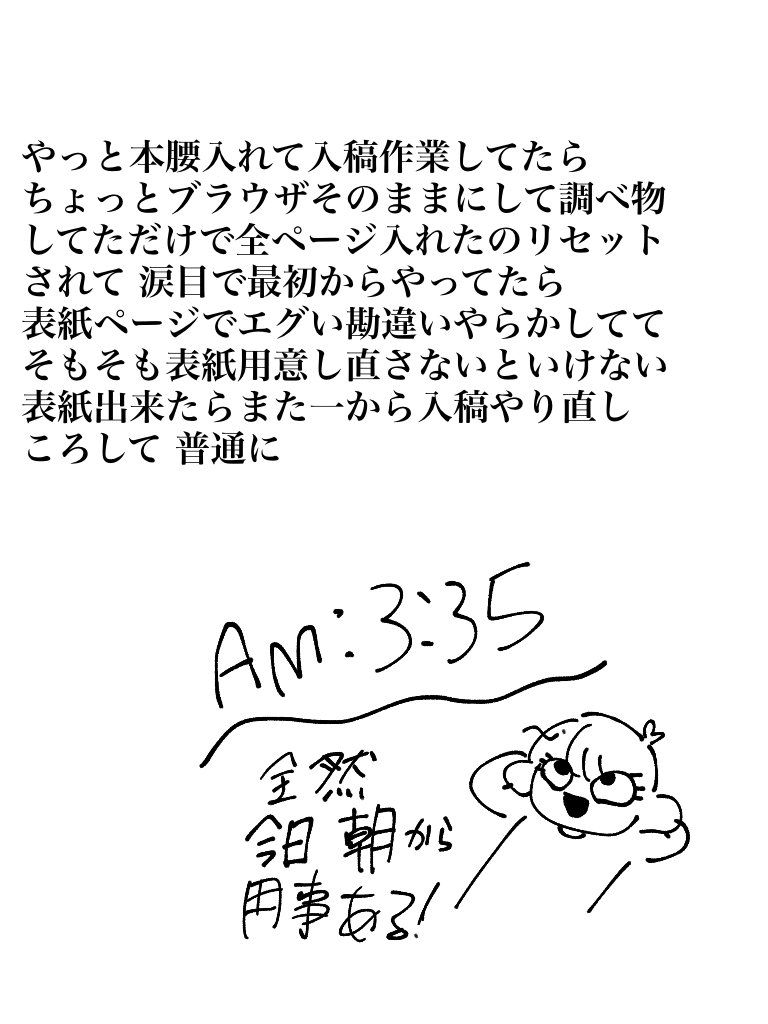 やっと本腰入れて入稿作業してたら
ちょっとブラウザそのままにして調べ物
してただけで全ページ入れたのリセット
されて 涙目で最初からやってたら
表紙ページでエグい勘違いやらかしてて
そもそも表紙用意し直さないといけない
表紙出来たらまた一から入稿やり直し
ころして 普通に
AM:3:35
全然
今日 朝から
用事ある!